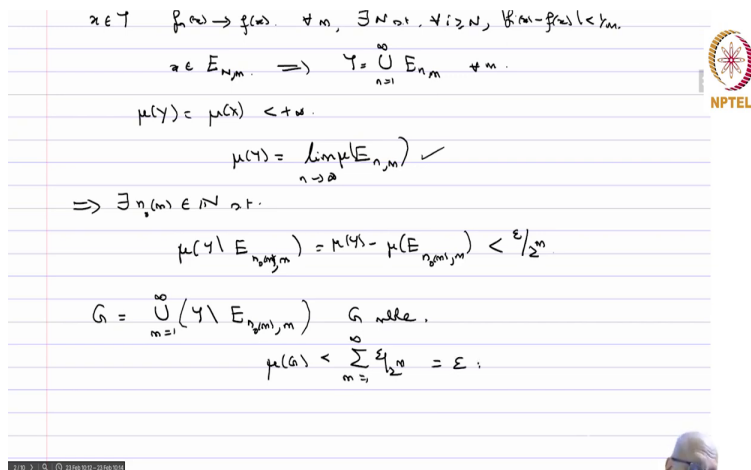 x ∈ Y fₙ(x) → f(x). ∀ m, ∃ N s.t. ∀ i ≥ N, |fᵢ(x) - f(x)| < 1/m.
x ∈ E_{N,m} ⟹ Y = ⋃_{n=1}^{∞} E_{n,m} ∀ m.
μ(Y) = μ(X) < +∞.
μ(Y) = lim_{n→∞} μ(E_{n,m}) ✓
⟹ ∃ n₀(m) ∈ ℕ s.t.
μ(Y \ E_{n₀(m),m}) = μ(Y) - μ(E_{n₀(m),m}) < ε/2^m
G = ⋃_{m=1}^{∞} (Y \ E_{n₀(m),m}) G mble.
μ(G) < Σ_{m=1}^{∞} ε/2^m = ε.
NPTEL
2/10 23 Feb 10:12 - 23 Feb 10:14